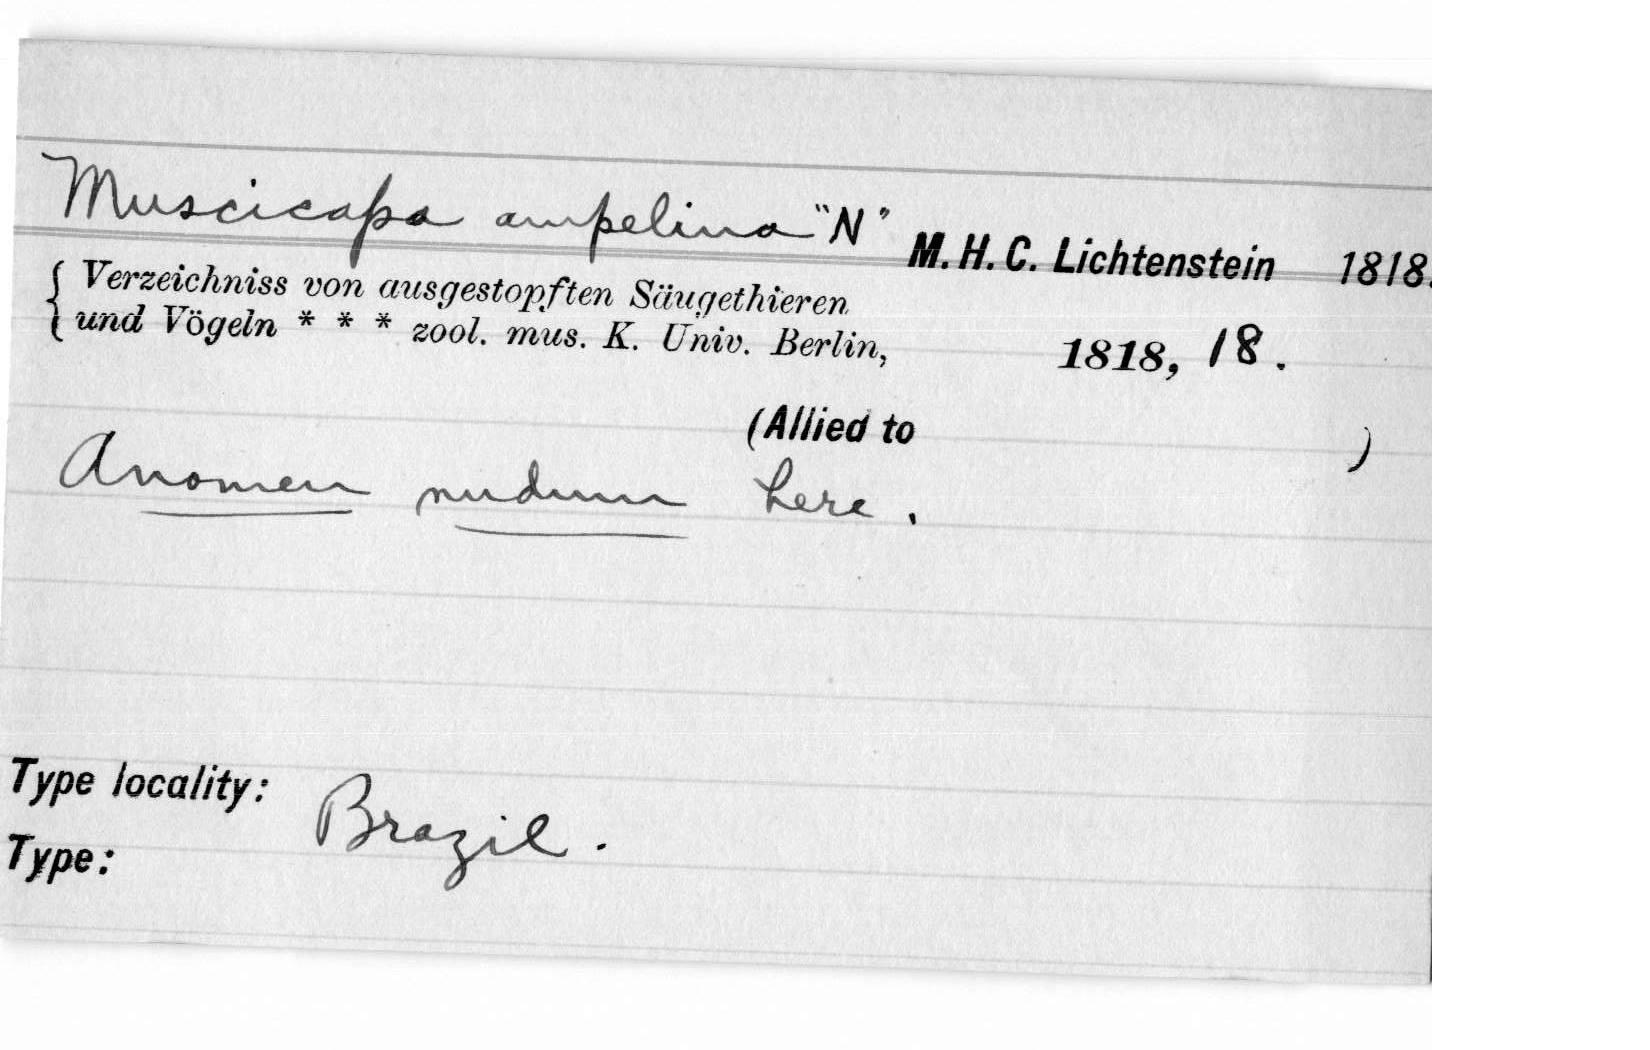 Muscicapa ampelina "N" M. H. C. Lichtenstein 1818.
Verzeichniss von ausgestopften Säugethieren
und Vögeln * * * zool. mus. K. Univ. Berlin, 1818, 18.
(Allied to )
A nomen nudum here.
Type locality: Brazil.
Type: